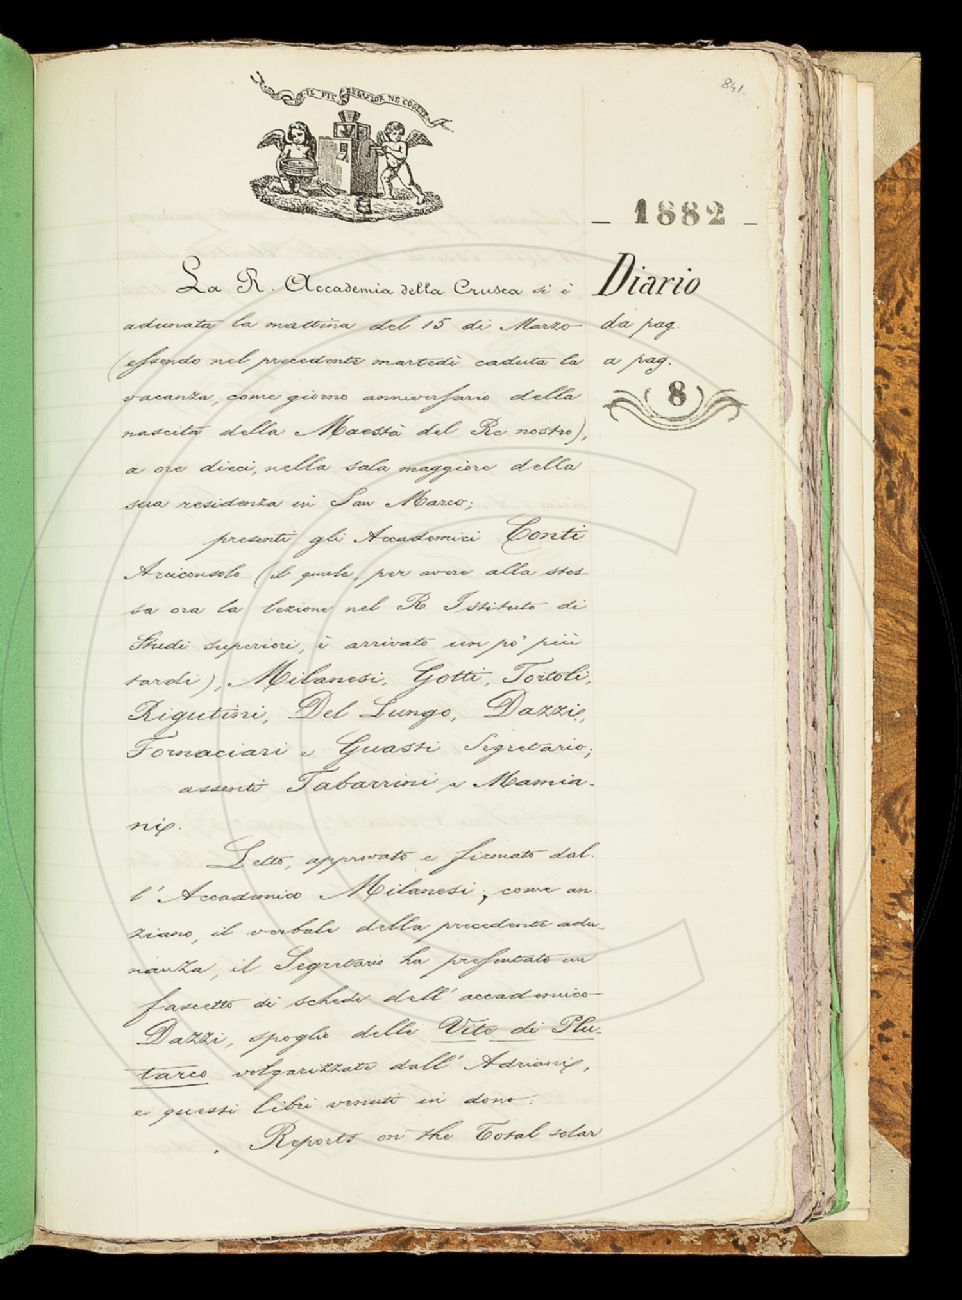 IL PIÙ BEL FIOR NE COGLIE
841.
1882
La R. Accademia della Crusca si è
adunata la mattina del 15 di Marzo
(essendo nel precedente martedì caduta la
vacanza, come giorno anniversario della
nascita della Maestà del Re nostro),
a ore dieci, nella sala maggiore della
sua residenza in San Marco;
presenti gli Accademici Conti
Arciconsolo (il quale, per avere alla stes
sa ora la lezione nel R. Istituto di
Studi superiori, è arrivato un po' più
tardi), Milanesi, Gotti, Tortoli,
Rigutini, Del Lungo, Dazzi,
Fornaciari e Guasti Segretario;
assenti Tabarrini e Mamia-
ni.
Letto, approvato e firmato dal-
l'Accademico Milanesi, come an
ziano, il verbale della precedente adu-
nanza, il Segretario ha presentato un
fascetto di schede dell'accademico
Dazzi, spoglio delle Vite di Plu-
tarco volgarizzate dall'Adriani,
e questi libri venuti in dono:
Reports on the Total solar
Diario
da pag.
a pag.
8